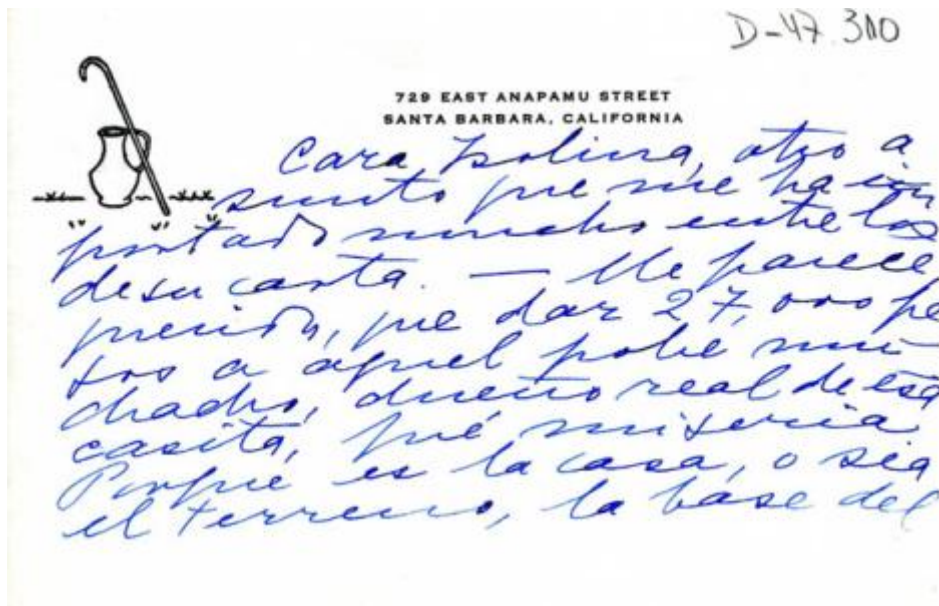 D-47.310
729 EAST ANAPAMU STREET
SANTA BARBARA, CALIFORNIA
Cara Isolina, otro a
sunto que me ha im
portado mucho entre los
de su carta. — Me parece,
que dar 27,000 pe
sos a aquel pobe mu
chacho, dueño real de esa
casita, qué miseria
Porqué es la casa, o sea
el terreno, la base del